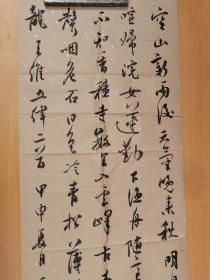 空山新雨後天氣晚來秋明月
喧歸浣女蓮動下漁舟隨意
不知香積寺數里入雲峰古木
聲咽危石日色冷青松薄
龍 王維五律二首 甲申夏月